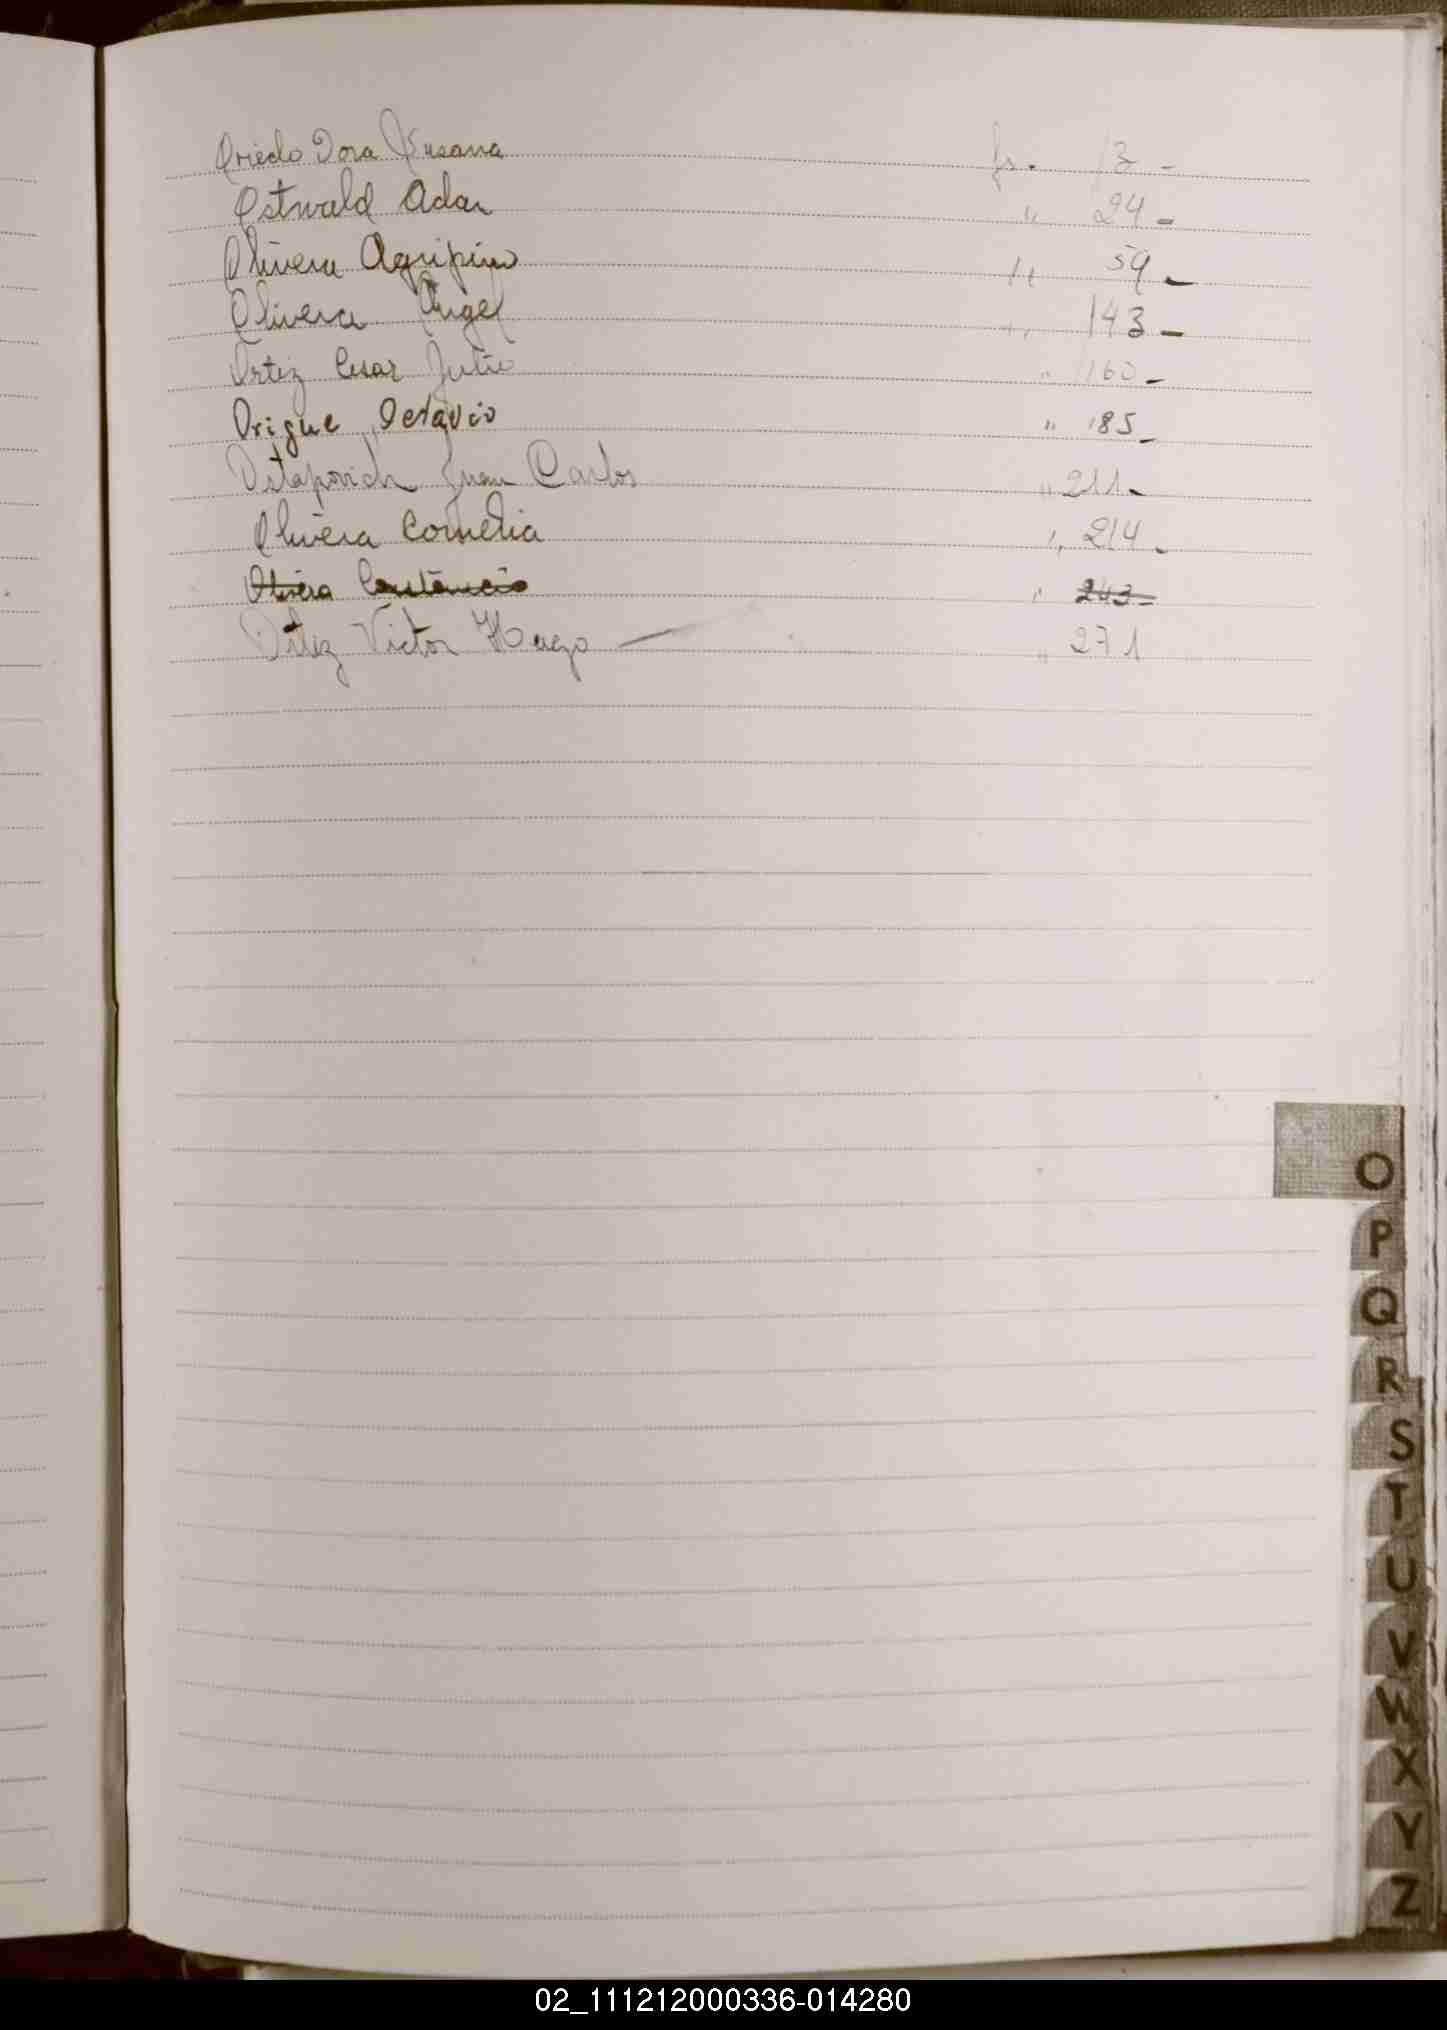 Oviedo Dora Susana fs. 13 -
Ostwald Adan " 24 -
Olivera Agripino " 59 -
Olivera Angel " 143 -
Ortiz Cesar Julio " 160 -
Origue Octavio " 185 -
Ostapovich Juan Carlos " 211 -
Olivera Cornelia " 214 -
Olivera Constancio " 243 -
Ortiz Victor Hugo — " 271
O
P
Q
R
S
T
U
V
W
X
Y
Z
02_111212000336-014280